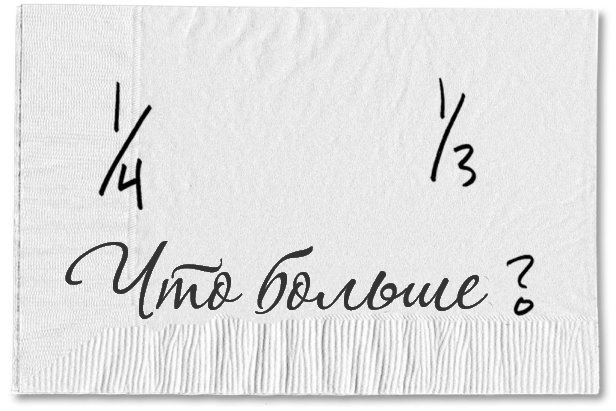 1/4 1/3
Что больше?